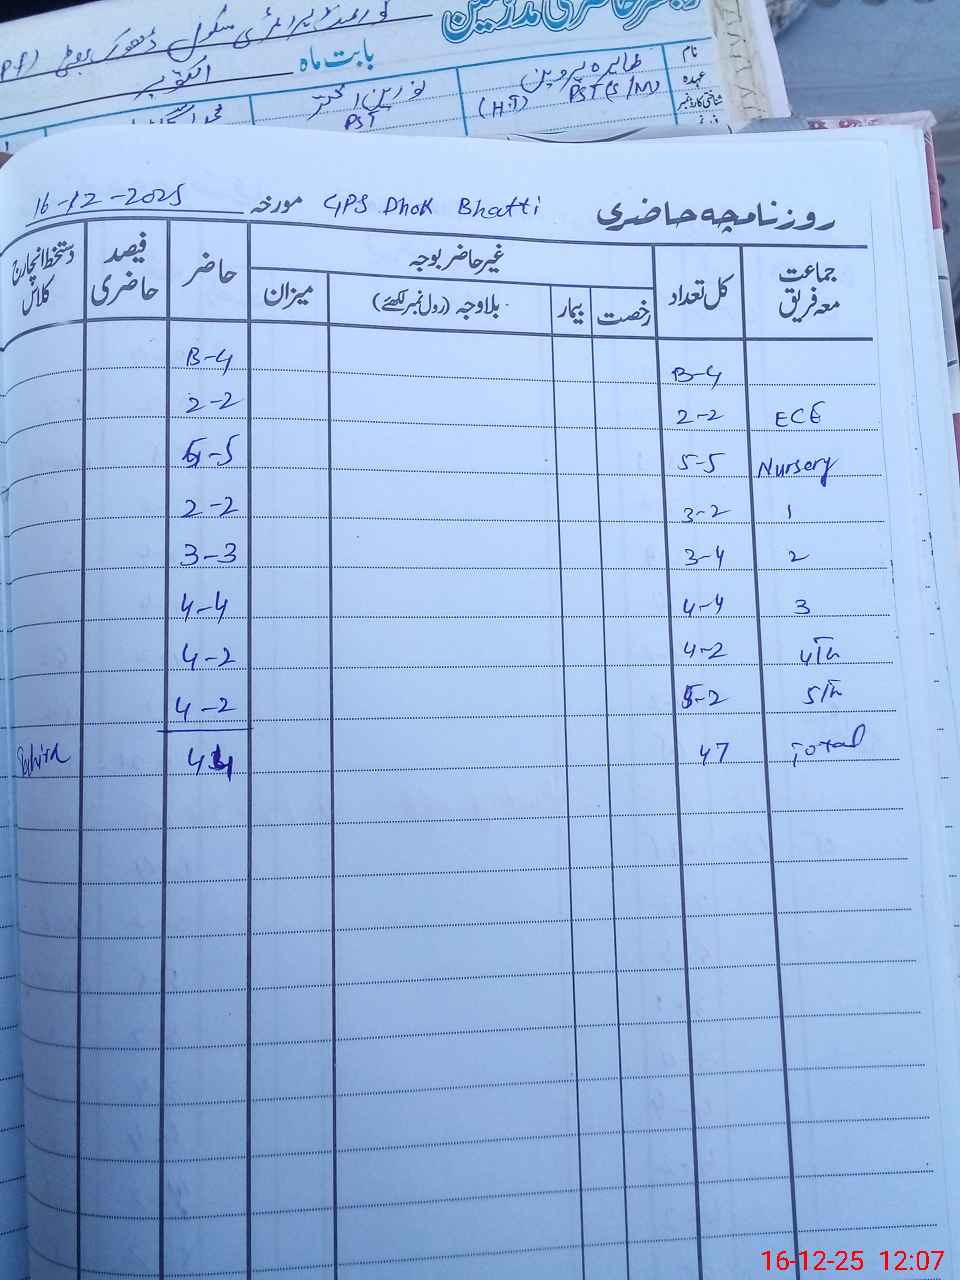 گورنمنٹ پرائمری سکول ڈھوک بھٹی
بابت ماہ اکتوبر
نام طاہرہ پروین نورین اختر
عہدہ PST (S/M) (HT) PST
شناختی کارڈ نمبر
روزنامچہ حاضری GPS Dhok Bhatti مورخہ 16-12-2025
جماعت معہ فریق کل تعداد غیر حاضر بوجہ حاضر فیصد حاضری دستخط انچارج کلاس
رخصت بیمار بلاوجہ (رول نمبر لکھئے) میزان
B-G B-G
ECE 2-2 2-2
Nursery 5-5 5-5
1 3-2 2-2
2 3-4 3-3
3 4-4 4-4
4Th 4-2 4-2
5Th 5-2 4-2
Total 47 44
16-12-25 12:07